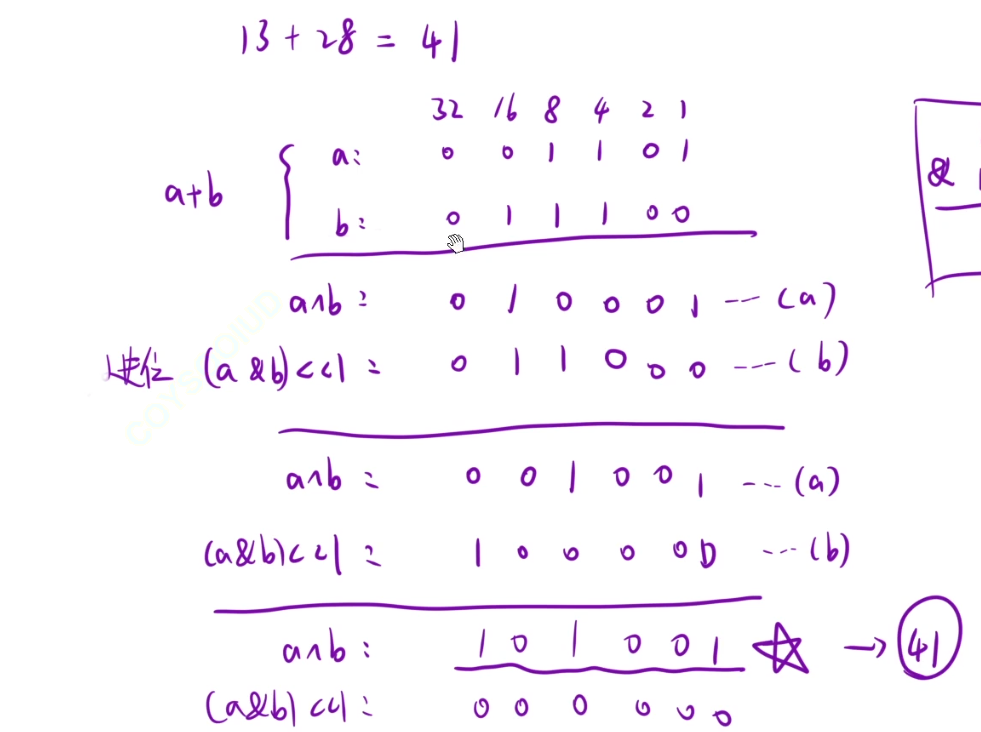 13 + 28 = 41
32 16 8 4 2 1
a: 0 0 1 1 0 1
a+b
b: 0 1 1 1 0 0
&
a^b: 0 1 0 0 0 1 --- (a)
进位 (a & b)<<1: 0 1 1 0 0 0 --- (b)
a^b: 0 0 1 0 0 1 --- (a)
(a&b)<<1: 1 0 0 0 0 0 --- (b)
a^b: 1 0 1 0 0 1 ☆ → 41
(a&b)<<1: 0 0 0 0 0 0